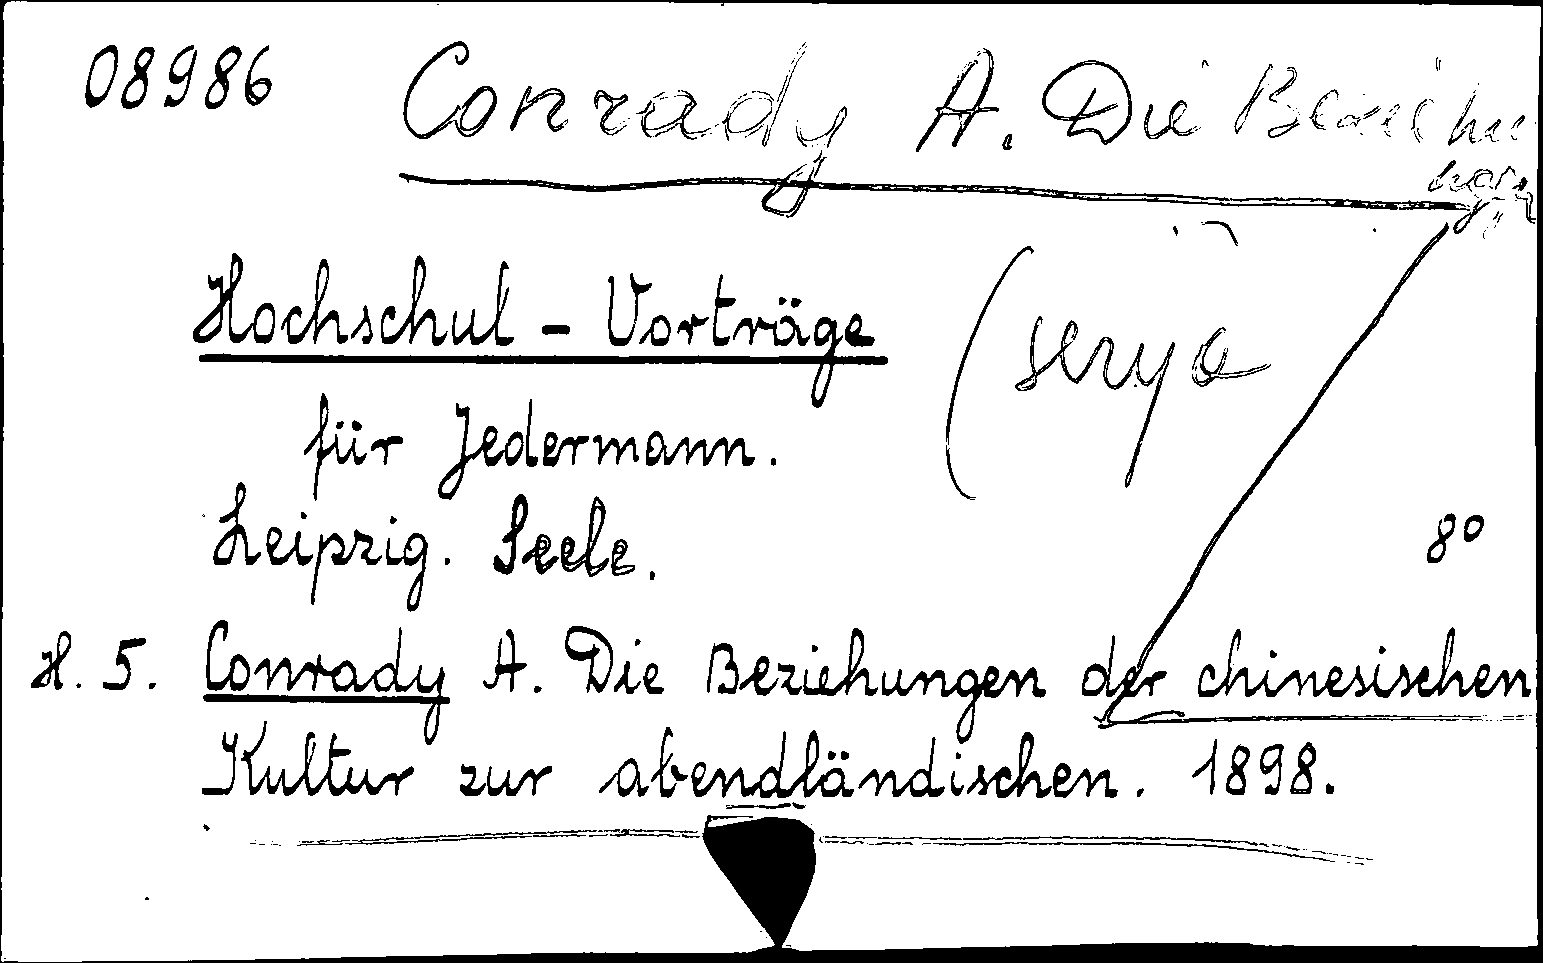 08986 Conrady A. Die Beziehu
ngen
Hochschul - Vorträge
(serja
für Jedermann.
Leipzig. Seele.
8°
H. 5. Conrady A. Die Beziehungen der chinesischen
Kultur zur abendländischen. 1898.